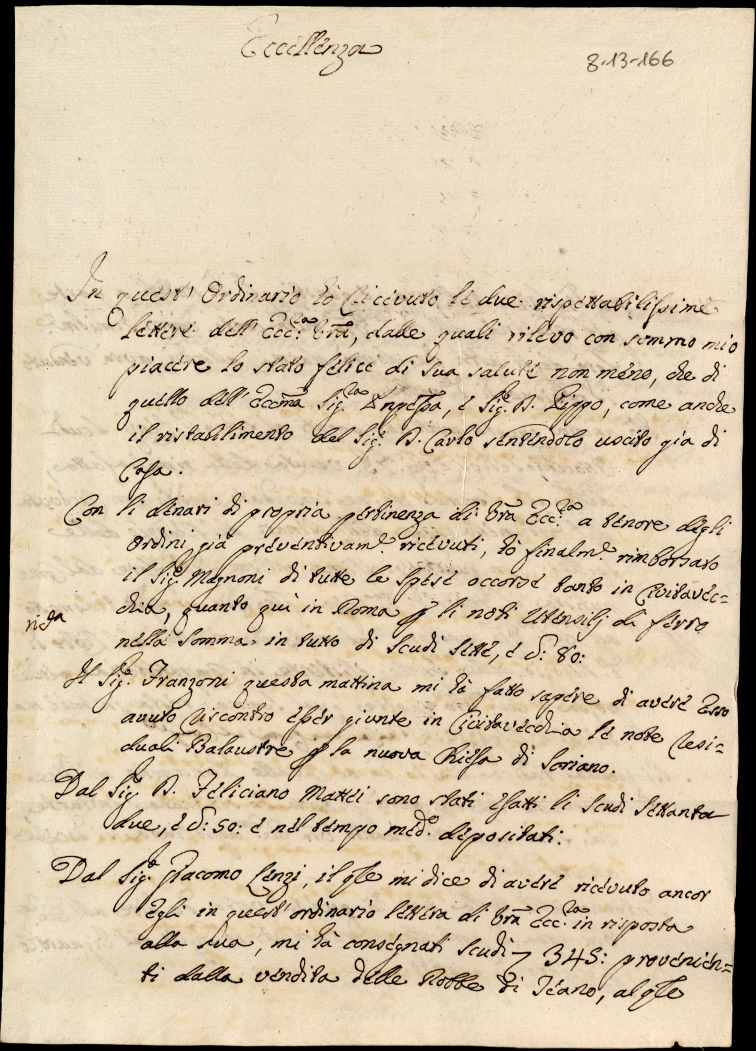 Eccellenza
8-13-166
In quest' Ordinario hò ricevuto le due rispettabilissime
lettere dell' Ecc:za Vrã, dalle quali rilevo con sommo mio
piacere lo stato felice di sua salute non meno, che di
quello dell' Eccm̃a Sig:ra Dñgessa, e Sig:r D. Pippo, come anche
il ristabilimento del Sig:r D. Carlo sentendolo uscito gia di
Casa.
Con li denari di propria pertinenza di Vrã Ecc:za a tenore degli
Ordini già preventivam:e ricevuti, hò finalm:e rimborsato
il Sig:r Magnoni di tutte le spese occorse tanto in Civitavec=
chia, quanto quì in Roma p li noti Utensilj di ferro
nella somma in tutto di Scudi Sette, e d: 80:
Il Sig:r Franzoni questa mattina mi hà fatto sapere di avere Esso
avuto riscontro esser giunte in Civitavecchia le note resi=
duali Balaustre p la nuova Chiesa di Soriano.
Dal Sig:r D. Feliciano Mattei sono stati esatti li Scudi Settanta
due, e d: 50: e nel tempo med:o depositati.
Dal Sig:r Giacomo Lenzi, il qle mi dice di avere ricevuto ancor
Egli in quest' ordinario lettera di Vrã Ecc:za in risposta
alla sua, mi hà consegnati Scudi 345: provenien=
ti dalla vendita delle Robbe di Teano, al qle